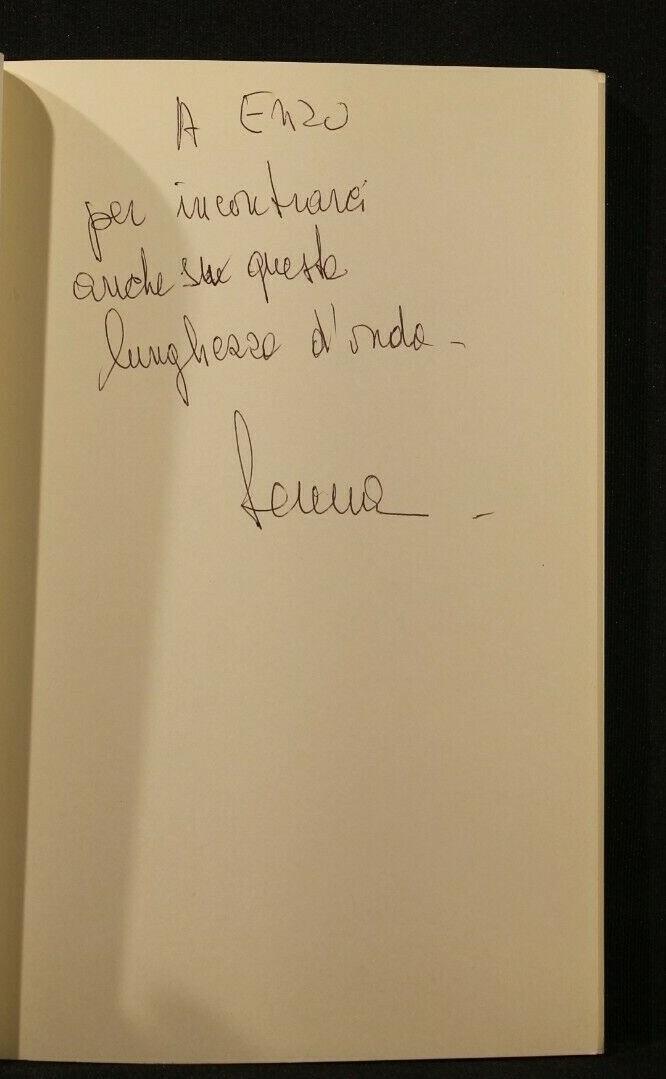 A Enzo
per incontrarci
anche su questa
lunghezza d'onda -